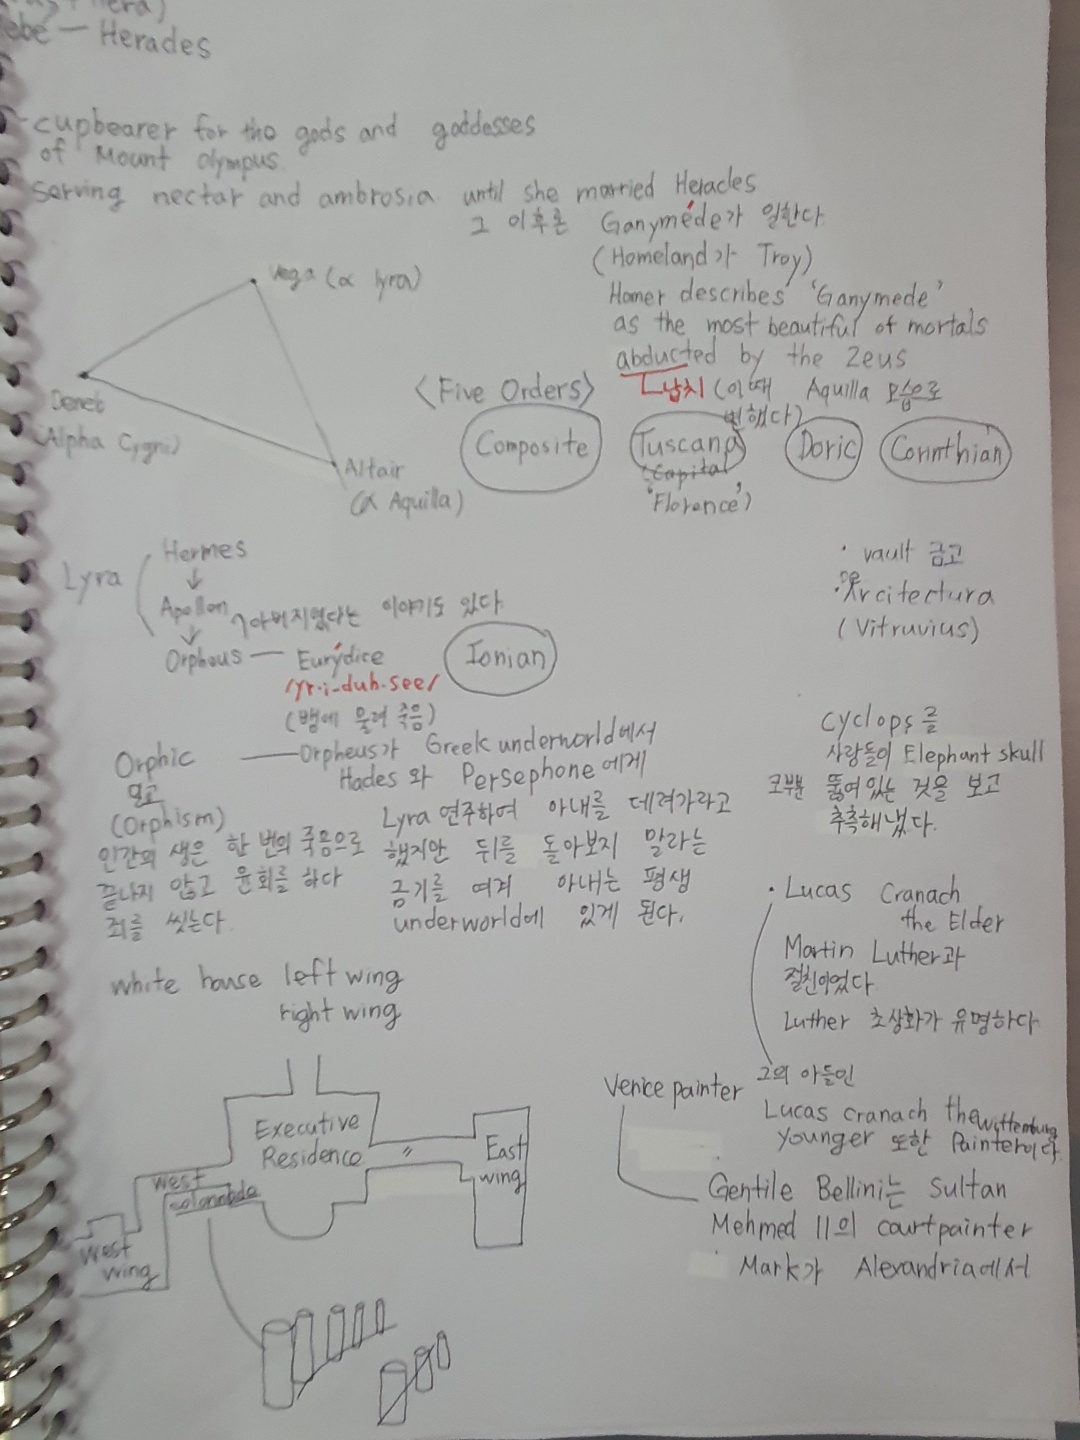 Hera)
ebe — Herades
- cupbearer for tho gods and goddesses
of Mount Olympus.
serving nectar and ambrosia until she married Heracles
그 이후론 Ganyméde가 일한다.
(Homeland가 Troy)
Homer describes 'Ganymede'
as the most beautiful of mortals
abducted by the Zeus
납치 (이때 Aquilla 모습으로
변했다)
Vega (α lyra)
Denet
(Alpha Cygni)
Altair
(α Aquilla)
<Five Orders>
Composite
Tuscana
(Capital
'Florence')
Doric
Corinthian
Lyra
Hermes
↓
Apollon
아버지였다는 이야기도 있다.
↓
Orpheus — Eurýdice
/yr·i-duh·see/
(뱀에 물려 죽음)
Ionian
· vault 금고
· Arcitectura
(Vitruvius)
Orphic
밀교
(Orphism)
인간의 생은 한 번의 죽음으로
끝나지 않고 윤회를 하다
죄를 씻는다.
— Orpheus가 Greek underworld에서
Hades 와 Persephone에게
Lyra 연주하여 아내를 데려가라고
했지만 뒤를 돌아보지 말라는
금기를 여겨 아내는 평생
underworld에 있게 된다.
Cyclops를
사람들이 Elephant skull
코부분 뚫여있는 것을 보고
추측해냈다.
· Lucas Cranach
the Elder
Martin Luther과
절친이었다.
Luther 초상화가 유명하다.
그의 아들인
Lucas cranach the
Wittenburg
younger 또한 Painter이다.
white house left wing
right wing
Executive
Residence
East
wing
West
colonnade
West
wing
Venice painter
Gentile Bellini는 Sultan
Mehmed II의 courtpainter
Mark가 Alexandria에서